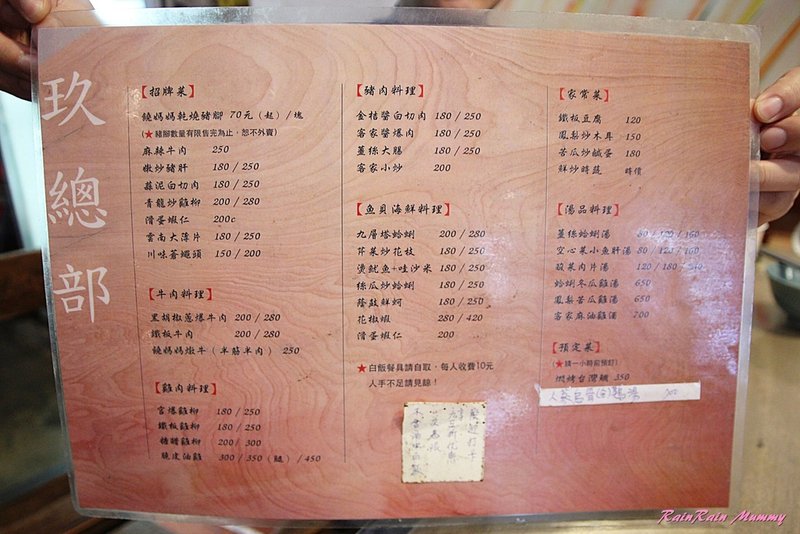 玖總部
【招牌菜】
饒媽媽乾燒豬腳 70元(起)/塊
★豬腳數量有限售完為止，恕不外賣)
麻辣牛肉 250
嫩炒豬肝 180 / 250
蒜泥白切肉 180 / 250
青龍炒雞柳 200 / 280
滑蛋蝦仁 200c
雲南大薄片 180 / 250
川味蒼蠅頭 150 / 200
【牛肉料理】
黑胡椒蔥爆牛肉 200 / 280
鐵板牛肉 200 / 280
饒媽媽燉牛(半筋半肉) 250
【雞肉料理】
宮爆雞柳 180 / 250
鐵板雞柳 180 / 250
糖醋雞柳 200 / 300
脆皮油雞 300 / 350(腿) / 450
【豬肉料理】
金桔醬白切肉 180 / 250
客家醬爆肉 180 / 250
薑絲大腸 180 / 250
客家小炒 200
【魚貝海鮮料理】
九層塔蛤蜊 200 / 280
芹菜炒花枝 180 / 250
燙魷魚+哇沙米 180 / 250
絲瓜炒蛤蜊 180 / 250
蔭鼓鮮蚵 180 / 250
花椒蝦 280 / 420
滑蛋蝦仁 200
★白飯餐具請自取，每人收費10元
人手不足請見諒！
【家常菜】
鐵板豆腐 120
鳳梨炒木耳 150
苦瓜炒鹹蛋 180
鮮炒時蔬 時價
【湯品料理】
薑絲蛤蜊湯 80 / 120 / 160
空心菜小魚肝湯 80 / 120 / 160
酸菜肉片湯 120 / 180 / 240
蛤蜊冬瓜雞湯 650
鳳梨苦瓜雞湯 650
客家麻油雞湯 700
【預定菜】
(★請一小時前預訂)
燜烤台灣鯛 350
RainRain Mummy